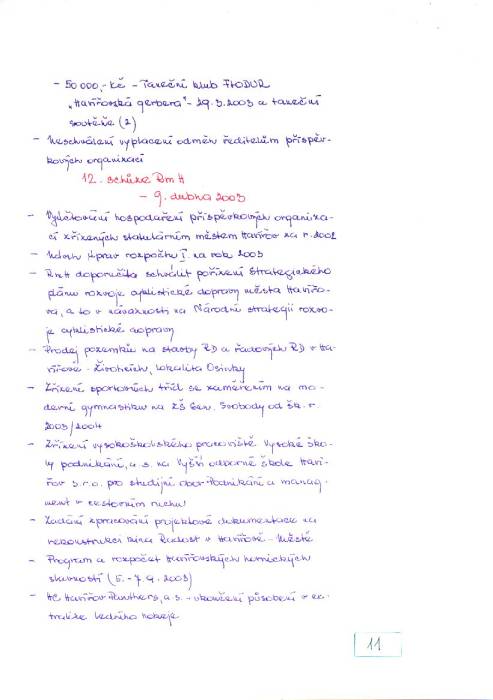 - 50 000,- Kč - Taneční klub FIODUR
„Havířovská gerbera" - 29.3.2003 a taneční
soutěže (2)
- Neschválení vyplacení odměn ředitelům příspěv-
kových organizací
12. schůze RmH
- 9. dubna 2003
- Vyúčtování hospodaření příspěvkových organiza-
cí zřízených statutárním městem Havířov za r. 2002
- Návrh úprav rozpočtu I. na rok 2003
- RmH doporučila schválit pořízení Strategického
plánu rozvoje cyklistické dopravy města Havířo-
va, a to v návaznosti na Národní strategii rozvo-
je cyklistické dopravy
- Prodej pozemků na stavby RD a řadových RD v Ha-
vířově - Životicích, lokalita Osinky
- Zřízení sportovních tříd se zaměřením na mo-
derní gymnastiku na ZŠ Gen. Svobody od šk. r.
2003/2004
- Zřízení vysokoškolského pracoviště Vysoké ško-
ly podnikání, a.s. na Vyšší odborné škole Haví-
řov s.r.o. pro studijní obor Podnikání a manag-
ment v cestovním ruchu
- Zadání zpracování projektové dokumentace na
rekonstrukci kina Radost v Havířově - Městě
- Program a rozpočet Havířovských hornických
slavností (5. - 7.9. 2003)
- HC Havířov Panthers, a.s. - ukončení působení v ex-
tralize ledního hokeje
11